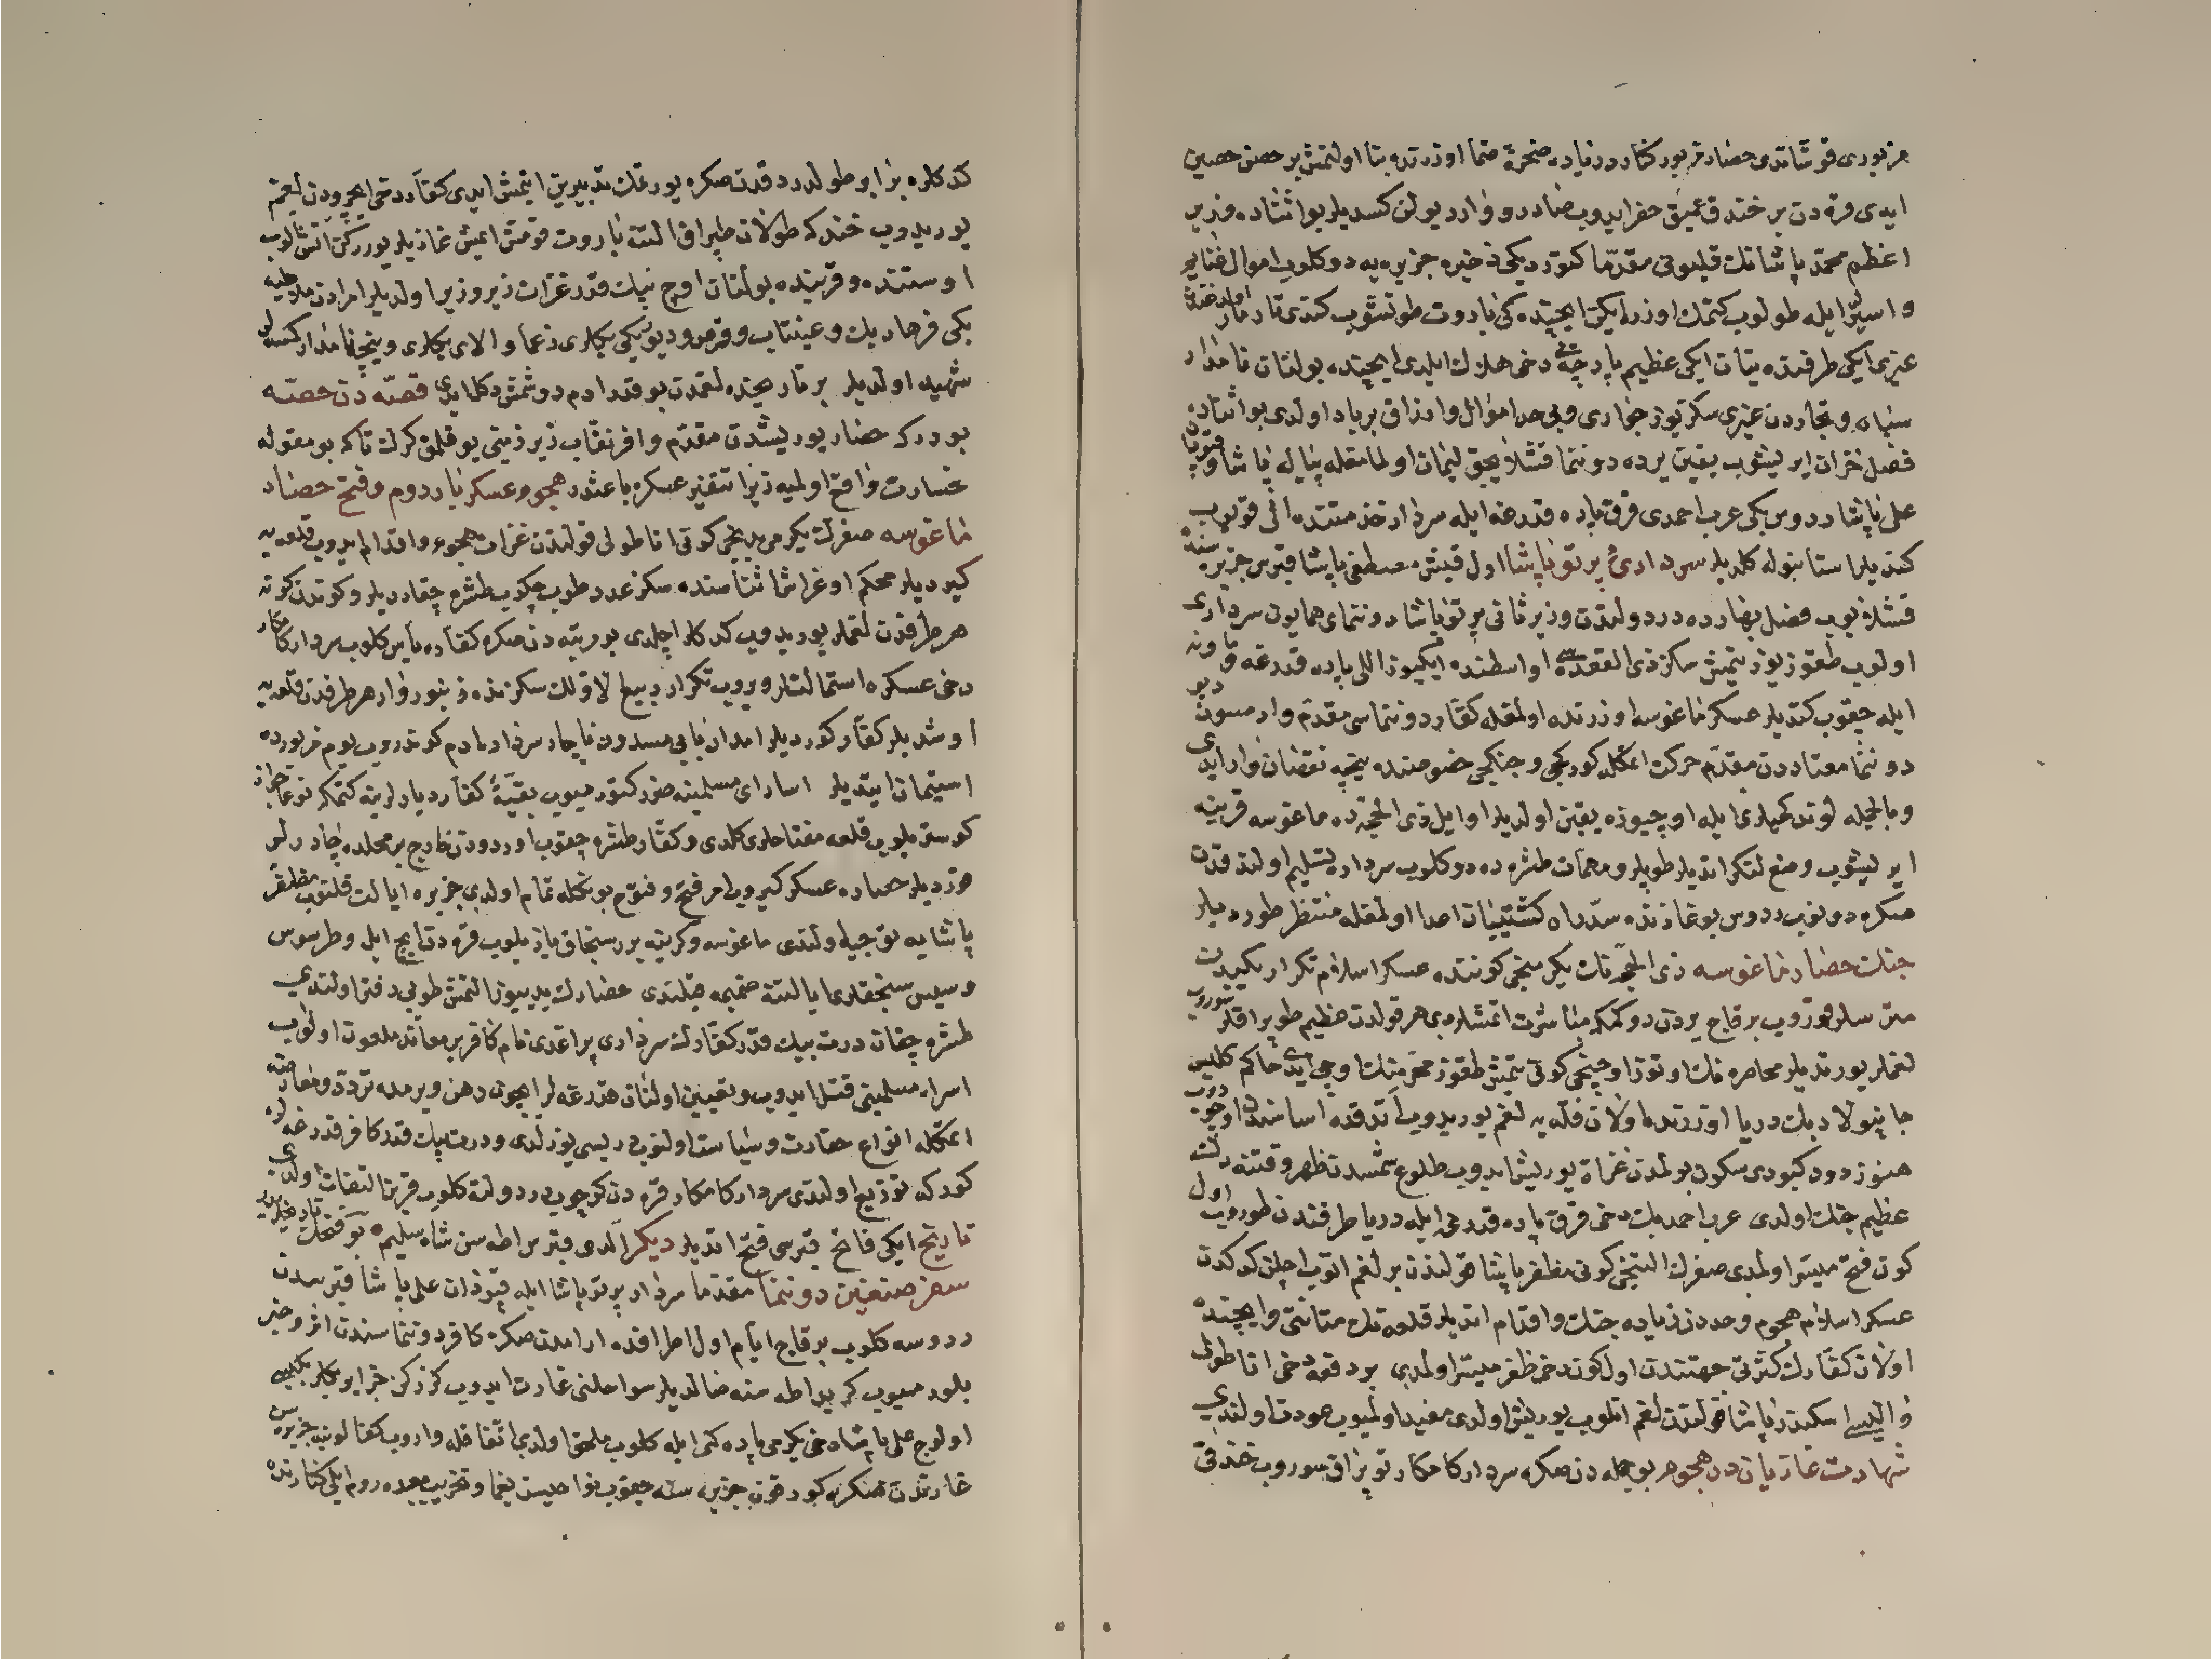 مزبوری قوشاتدی حصار مزبور کنار دریاده صخرهٔ صما اوزرنده بنا اولنمش بر حصن حصین
ایدی قره دن بر خندق عمیق حفر ایدوب صادر و وارد یولن کسدیلر بو اثناده وزیر
اعظم محمد پاشانك قلیونی مقدما کتوردیکی ذخیره جزیره یه دوکلوب اموال غنایم
و اسیر ایله طولوب کتمك اوزره ایکن ایچنده کی باروت طوتشوب کندی تارمار اولدقدنشه
غیری ایکی طرفنده یتان ایکی عظیم پارچه یی دخی هلاك ایلدی ایچنده بولنان نامدار
سپاه و تجاردن غیری سکز یوز جواری و بی حد اموال و ارزاق برباد اولدی بو اثناده
فصل خزان ایریشوب یقین یرده دوننما قشلایجق لیمان اولمامغله پیاله پاشا و قپودان
علی پاشا ردوس بکی عرب احمدی قرق پاره قدرغه ایله سردار خدمتنده الی قویوب
کتدیلر استانبوله کلدیلر سرداری پرتو پاشا اول قیش مصطفی پاشا قبرس جزیره سنده
قشلایوب فصل بهارده در دولتدن وزیر ثانی پرتو پاشا دوننمای همایون سرداری
اولوب طقوز یوز یتمش سکز ذی القعده سی اواسطنده ایکیوز اللی پاره قدرغه و ماونه
ایله چقوب کتدیلر عسکر ماغوسه اوزرنده اولمغله کفار دوننماسی مقدم وارمسون دیو
دوننما معتاددن مقدم حرکت اتمکله کورکجی و جنکجی خصوصنده نیچه نقصان وار ایدی
و بالجمله لوند کمیلری ایله اوچیوزه یقین اولدیلر اوایل ذی الحجه ده ماغوسه قربنه
ایریشوب وضع لنکر اتدیلر طوپلر و مهمات طشره ده دوکلوب سرداره تسلیم اولندقدن
صکره دونوب ردوس بوغازنده سد راه کشتیبان اعدا اولمغله منتظر طوردیلر
جنك حصار ماغوسه ذی الحجه نك یکرمنجی کوننده عسکر اسلام تکرار یکیدن
مترسلر قوروب بر قاچ یردن دوکمکه مباشرت اتمشلردی هر قولدن عظیم طوپراقلر سوروب
لغملر یورتدیلر محاصره نك اوتوز اوچنجی کونی یتمش طقوز محرمنك اوچی ایدی حاکم کلیس
جانپولاد بك دریا اوزرنده اولان قله یه لغم یوریدوب آتدقده اساسندن اوچوب دوب
هنوز دود کبودی سکون بولمدن غزاة یوریش ایدوب طلوع شمسدن ظهر وقتنه دك
عظیم جنك اولدی عرب احمد بك دخی قرق پاره قدرغه ایله دریا طرفندن طوروب اول
کون فتح میسر اولمدی صفرك التنجی کونی مظفر پاشا قولندن بر لغم اتوب اچلن کدکدن
عسکر اسلام هجوم و حددن زیاده جنك و اقدام اتدیلر قلعه نك متانتی و ایچنده
اولان کفارك کثرتی جهتندن اول کون دخی ظفر میسر اولمدی بر دفعه دخی اناطولی
والیسی اسکندر پاشا قولندن لغم اتلوب یوریش اولدی مفید اولمیوب عودت اولندی
شهادت غازیان در هجوم بو جمله دن صکره سردار کامکار توپراق سوروب خندقی
کدکلره برابر طولدردقدن صکره یورتمك تدبیرین ایتمش ایدی کفار دخی ایچرودن لغم
یوریدوب خندکه طولان طپراق التنه باروت قومش ایمش غازیلر یوررکن اتش الوب
اوستنده و قربنده بولنان اوچ بیك قدر غزات زیر و زبر اولدیلر امرادن ملاطیه
بکی فرهاد بك و عینتاب و قرص و دیوریکی بکلری زعما و الای بکلری و نیچه نامدار کسنه لر
شهید اولدیلر بر تاریخده لغمدن بو قدر ادم دوشمش دکلدی قصه دن حصه
بودرکه حصار یوریشدن مقدم وافر نقاب زیر زمینی یوقلمق کرك تاکه بو مقوله
خسارت واقع اولمیه زیرا تنفیر عسکره باعثدر هجوم عسکر بار دوم و فتح حصار
ماغوسه صفرك یکرمی یدنجی کونی اناطولی قولندن غزات هجوم و اقدام ایدوب قلعه یه
کیردیلر محکم اوغراش اثناسنده سکز عدد طوب چکوب طشره چقاردیلر و کوندن کونه
هر طرفدن لغملر یوریدوب کدکلر اچلدی بو رتبه دن صکره کفاره یاس کلوب سردار کامکار
دخی عسکره استمالتلر ویروب تکرار ربیع الاولك سکزنده زنبوروار هر طرفدن قلعه یه
اوشدیلر کفار کوردیلر امدان بابی مسدود ناچار سرداره ادم کوندروب یوم مزبورده
استیمان ایتدیلر اسارای مسلمینه ضرر کتورمیوب بقیهٔ کفاره دیارلرینه کتمکه نوعا جواز
کوستریلوب قلعه مفتاحلری کلدی و کفار طشره چقوب اوردودن خارج بر محلده چادرلر
قوردیلر حصاره عسکر کیروب امر فتح و فتوح بونکله تمام اولدی جزیره ایالت قلنوب مظفر
پاشایه توجیه اولندی ماغوسه و کرینه برر سنجاق یازیلوب قره دن ایچ ایل و طرسوس
و سیس سنجقلری ایالته ضمیمه قیلندی حصارك یدییوز التمش طوپی دفتر اولندی
طشره چقان درت بیك قدر کفارك سرداری براغدی نام کافر بر معاند ملعون اولوب
اسراء مسلمینی قتل ایدوب و تعیین اولنان قدرغه لر ایچون رهن ویرمده تردد و معارضه
اتمکله انواع حقارت و سیاست اولنوب دریسی یوزلدی و درت بیك قدر کافر قدرغه لره
کورکه توزیع اولندی سردار کامکار قره دن کوچوب در دولته کلوب قرین التفات اولدی
تاریخ ایکی فاتح قبرسی فتح اتدیلر دیکر الدی قبرس اطه سن شاه سلیم بو فتحك تاریخلریدر
سفر صنغین دوننما مقدما سردار پرتو پاشا ایله قپودان علی پاشا قبرسدن
ردوسه کلوب بر قاچ ایام اول اطرافده ارامدن صکره کافر دوننماسندن اثر و خبر
بلورمیوب کرید اطه سنه صالدیلر سواحلنی غارت ایدوب کزرکن جزایر بکلربکیسی
اولوج علی پاشا دخی یکرمی پاره کمی ایله کلوب ملحق اولدی اتفاقله واروب کفالونیه جزیره سن
غارتدن صکره کورفوز جزیره سنه چقوب نواحیسن یغما و تخریب بعده روم ایلی کنارنده